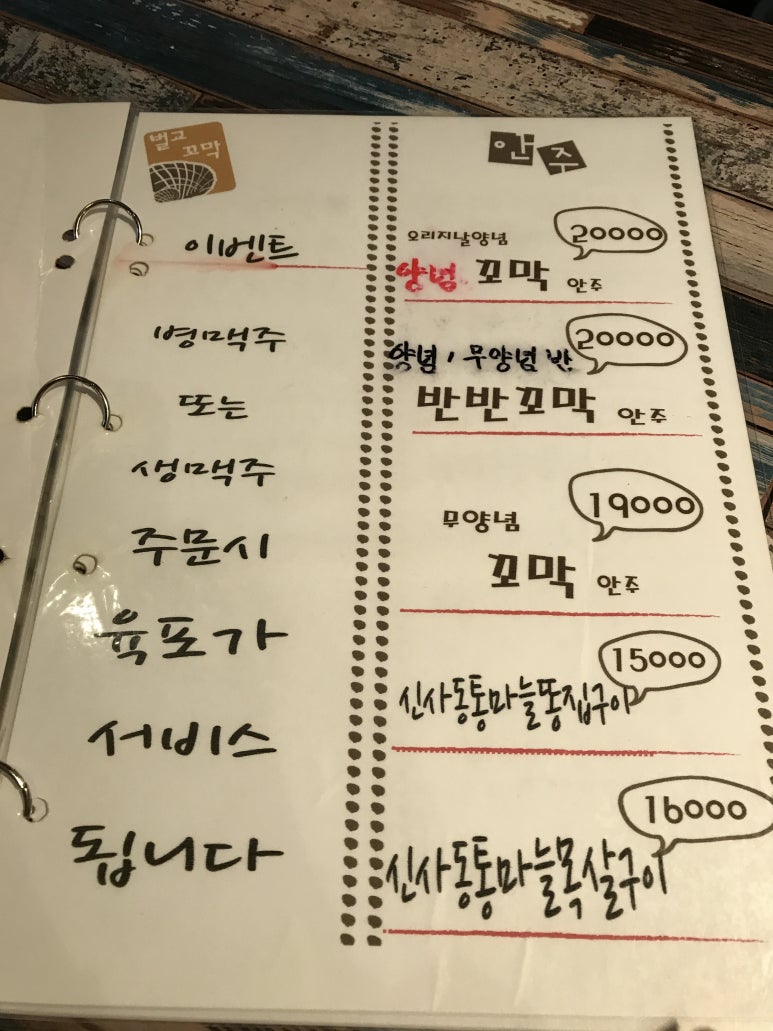 벌교
꼬막
이벤트
병맥주
또는
생맥주
주문시
육포가
서비스
됩니다
안주
오리지날양념
20000
양념 꼬막 안주
20000
양념, 무양념 반
반반꼬막 안주
19000
무양념
꼬막 안주
15000
신사동통마늘똥집구이
16000
신사동통마늘목살구이